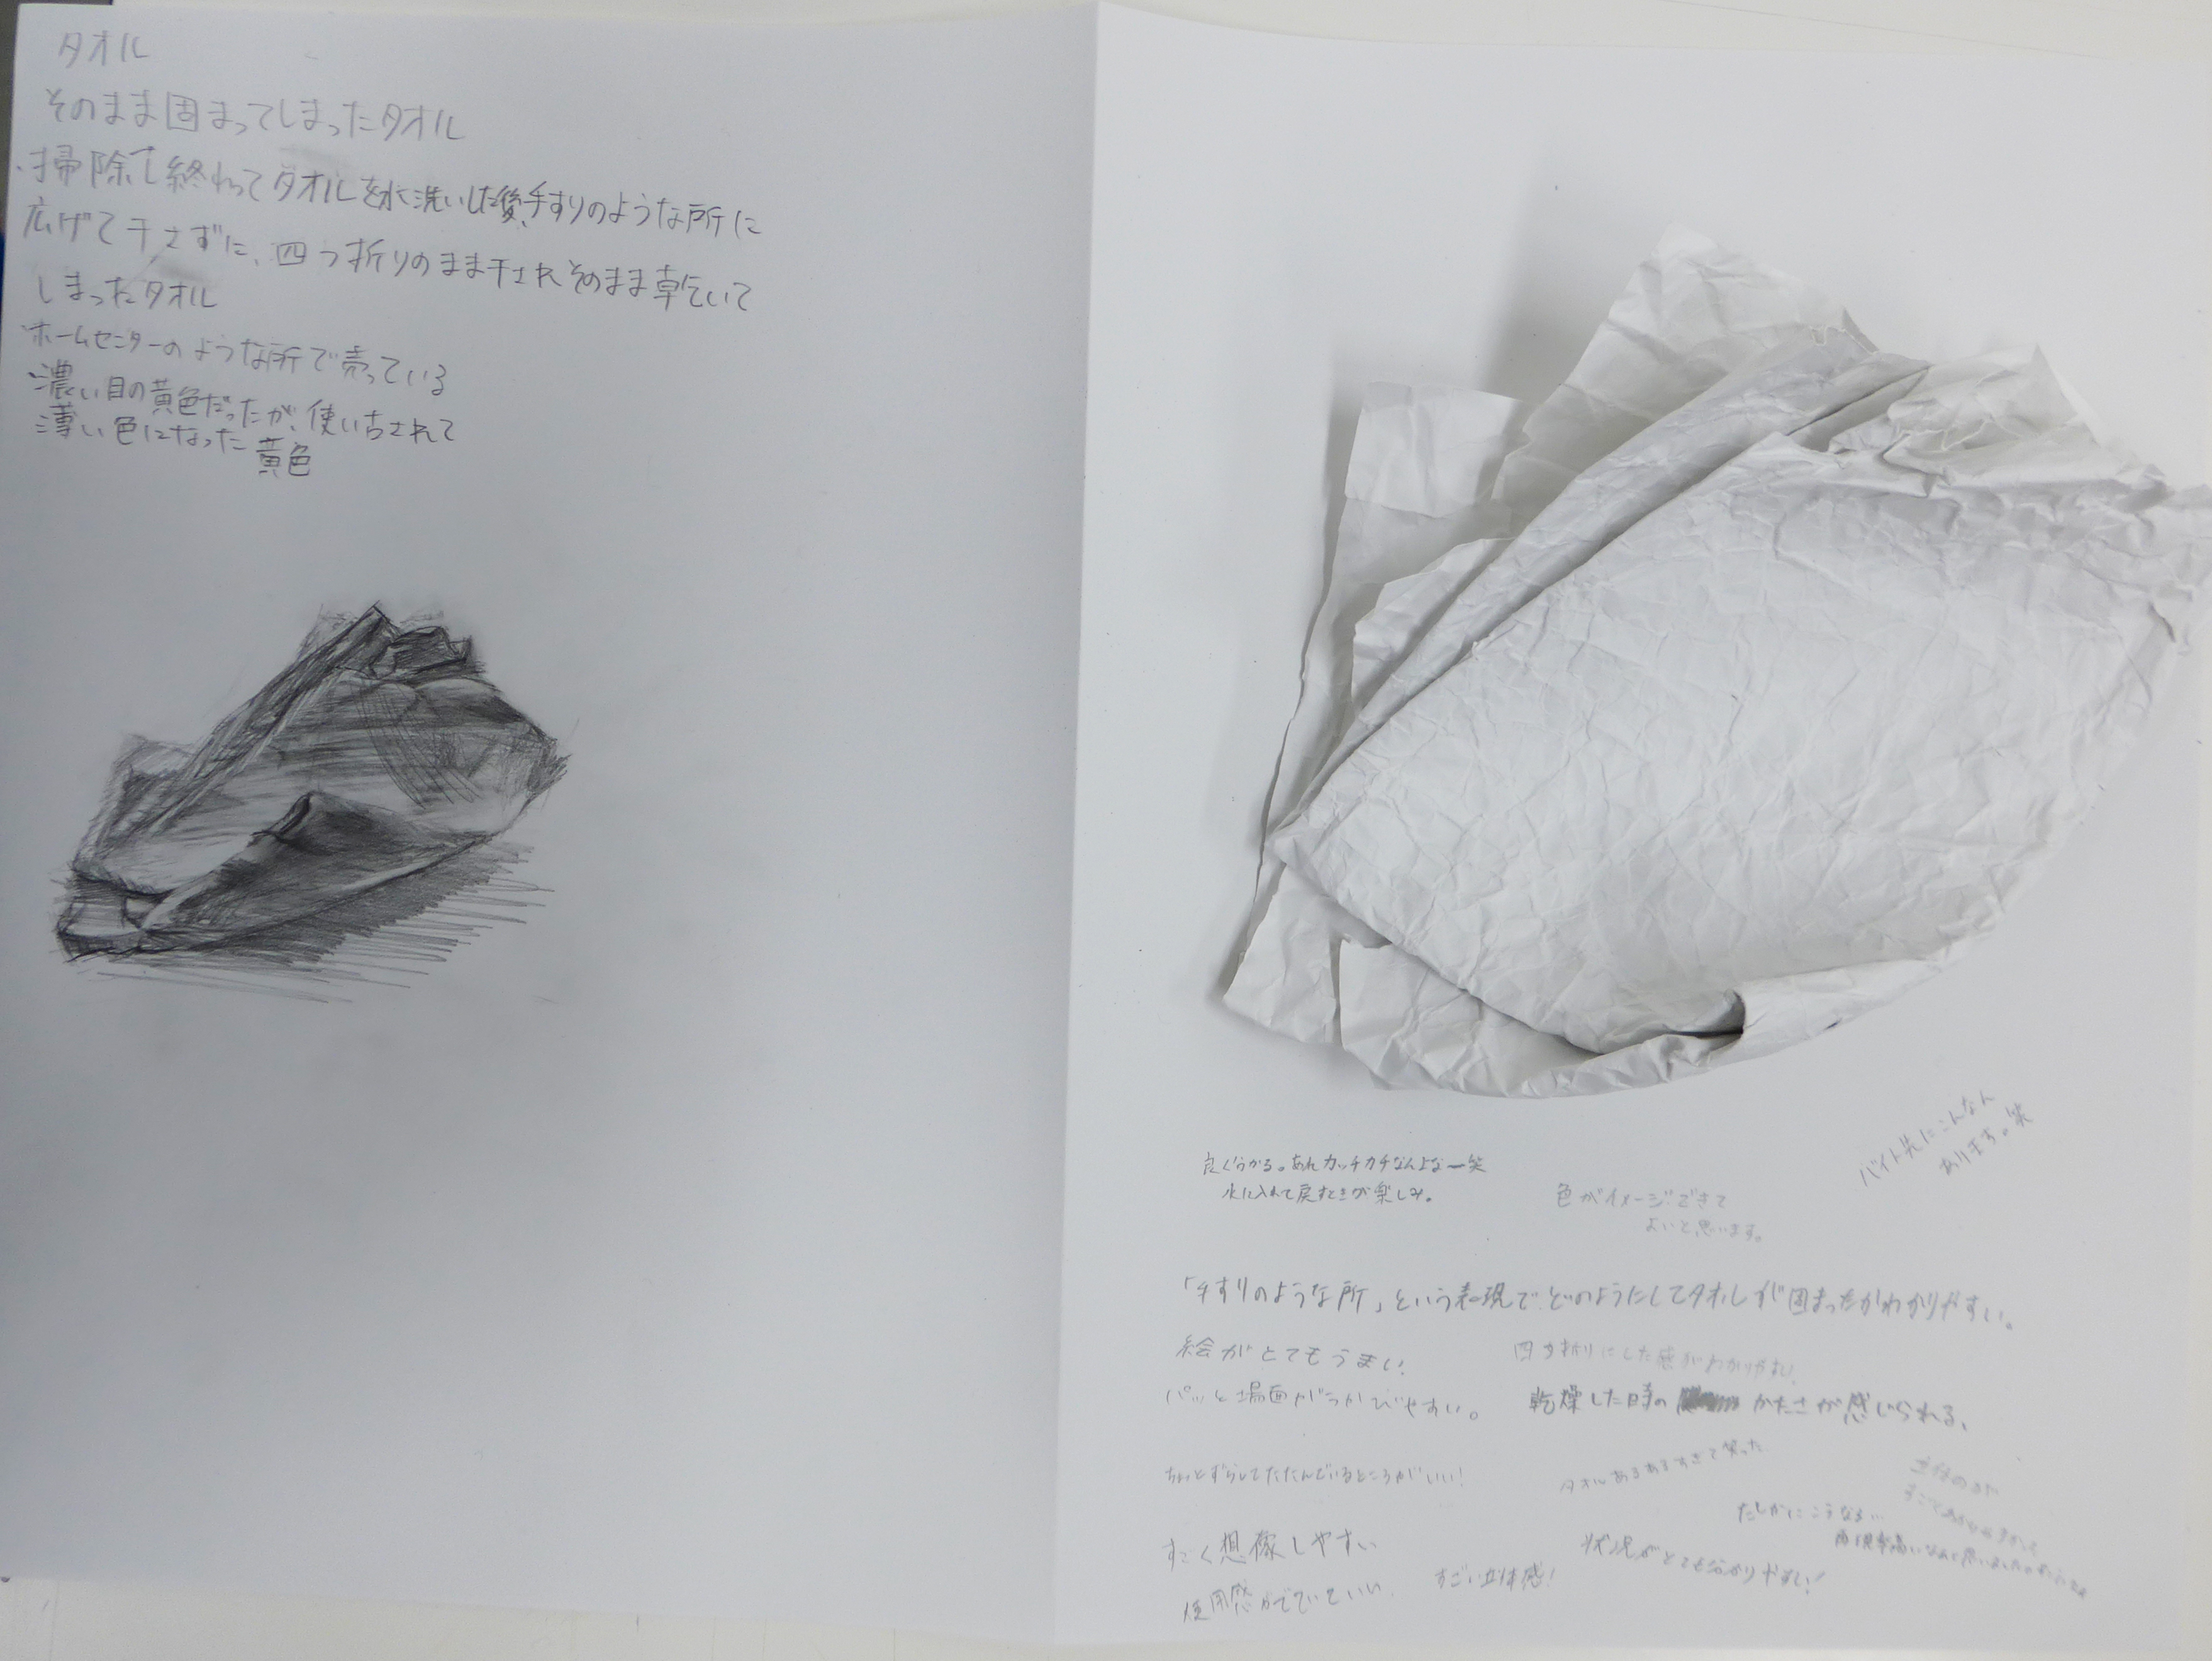 タオル
そのまま固まってしまったタオル
・掃除し終わってタオルを水洗いした後、手すりのような所に
広げて干さずに、四つ折りのまま干されそのまま乾いて
しまったタオル
・ホームセンターのような所で売っている
・濃い目の黄色だったが、使い古されて
薄い色になった黄色
バイト先にこんなん
あります。笑
良く分かる。あれカッチカチなんよなー笑
水に入れて戻すときが楽しみ。
色がイメージできて
よいと思います。
「手すりのような所」という表現でどのようにしてタオルが固まったかわかりやすい。
絵がとてもうまい!
四つ折りにした感がわかりやすい!
パッと場面がうかびやすい。
乾燥した時の かたさが感じられる、
ちょっとずらしてたたんでいるところがいい!
タオルあるあるすぎて笑った
たしかにこうなる…
すごく想像しやすい
状況がとても分かりやすい!
すごい立体感!
使用感がでていていい.